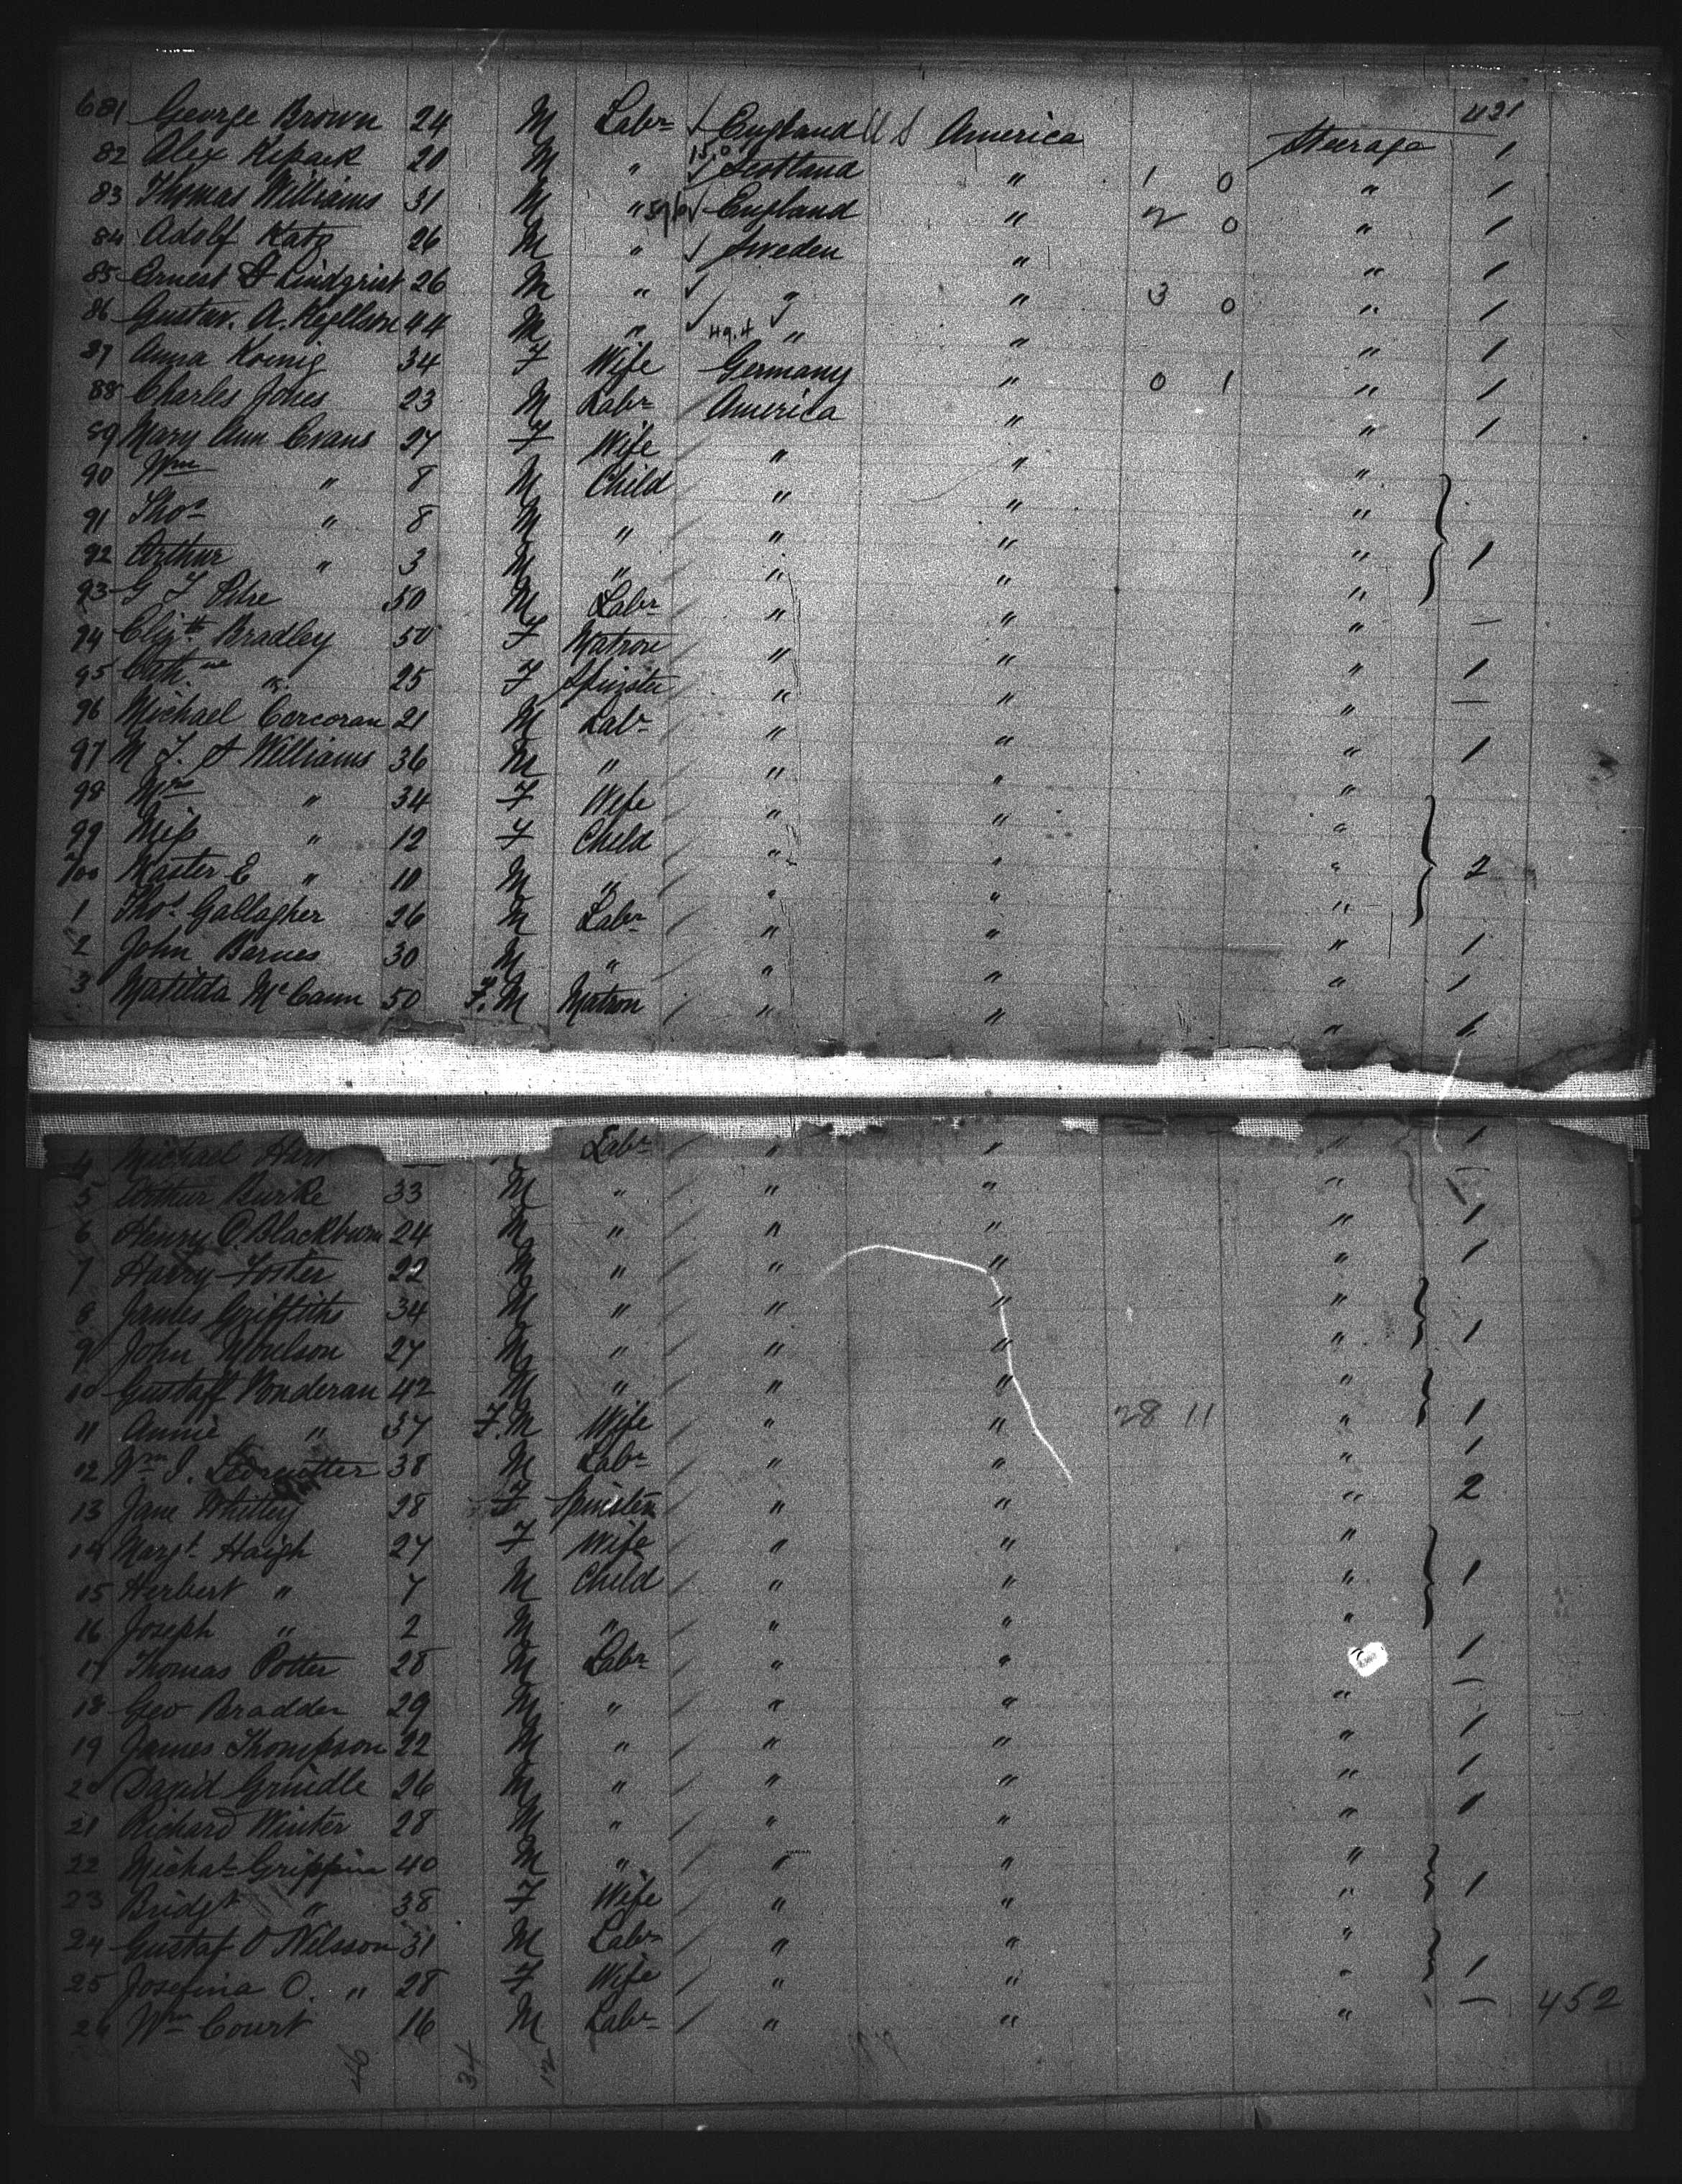 421
681 George Brown 24 M Labr England U S America Steerage 1
82 Alex 20 M " Scotland " 1 0 " 1
83 Thomas Williams 31 M " England " 2 0 " 1
84 Adolf Katz 26 M " Sweden " " 1
85 Ernest Lindqrist 26 M " " " 3 0 " 1
86 Gustav. A. Kjellson 44 M " 49.4 " " " 1
87 Anna Koenig 34 F Wife Germany " 0 1 " 1
88 Charles Jones 23 M Labr America " " 1
89 Mary Ann Evans 27 F Wife " " "
90 Wm " 8 M Child " " "
91 Thos " 8 M " " " "
92 Arthur " 3 M " " " " 1
93 G F 50 M Labr " " " —
94 Elizth Bradley 50 F Matron " " " 1
95 Cathne " 25 F Spinster " " " —
96 Michael Corcoran 21 M Labr " " " 1
97 M J. A Williams 36 M " " " "
98 Mrs " 34 F Wife " " "
99 Miss " 12 F Child " " " 2
700 Master E " 10 M " " " "
1 Thos Gallagher 26 M Labr " " " 1
2 John Barnes 30 M " " " " 1
3 Matilda McCann 50 F. M Matron " " " 1
4 Michael Labr " " " 1
5 Arthur Burke 33 M " " " "
6 Henry O Blackburn 24 M " " " " 1
7 Harry Foster 22 M " " " " 1
8 James Griffiths 34 M " " " "
9 John 27 M " " " " 1
10 Gustaff Vonderan 42 M " " " "
11 Annie " 37 F. M Wife " " 28 11 " 1
12 Wm J. 38 M Labr " " " 1
13 Jane Whitley 28 F Spinster " " " 2
14 Margt Haigh 27 F Wife " " "
15 Herbert " 7 M Child " " " 1
16 Joseph " 2 M " " " "
17 Thomas Potter 28 M Labr " " " 1
18 Geo Bradder 29 M " " " " —
19 James Thompson 22 M " " " " 1
20 David Grindle 26 M " " " " 1
21 Richard Winter 28 M " " " " 1
22 Michal Grippin 40 M " " " "
23 Bridgt " 38 F Wife " " " 1
24 Gustaf O Nilsson 31 M Labr " " "
25 Josefina O. " 28 F Wife " " " 1
26 Wm Court 16 M Labr " " " — 452
46 34 12